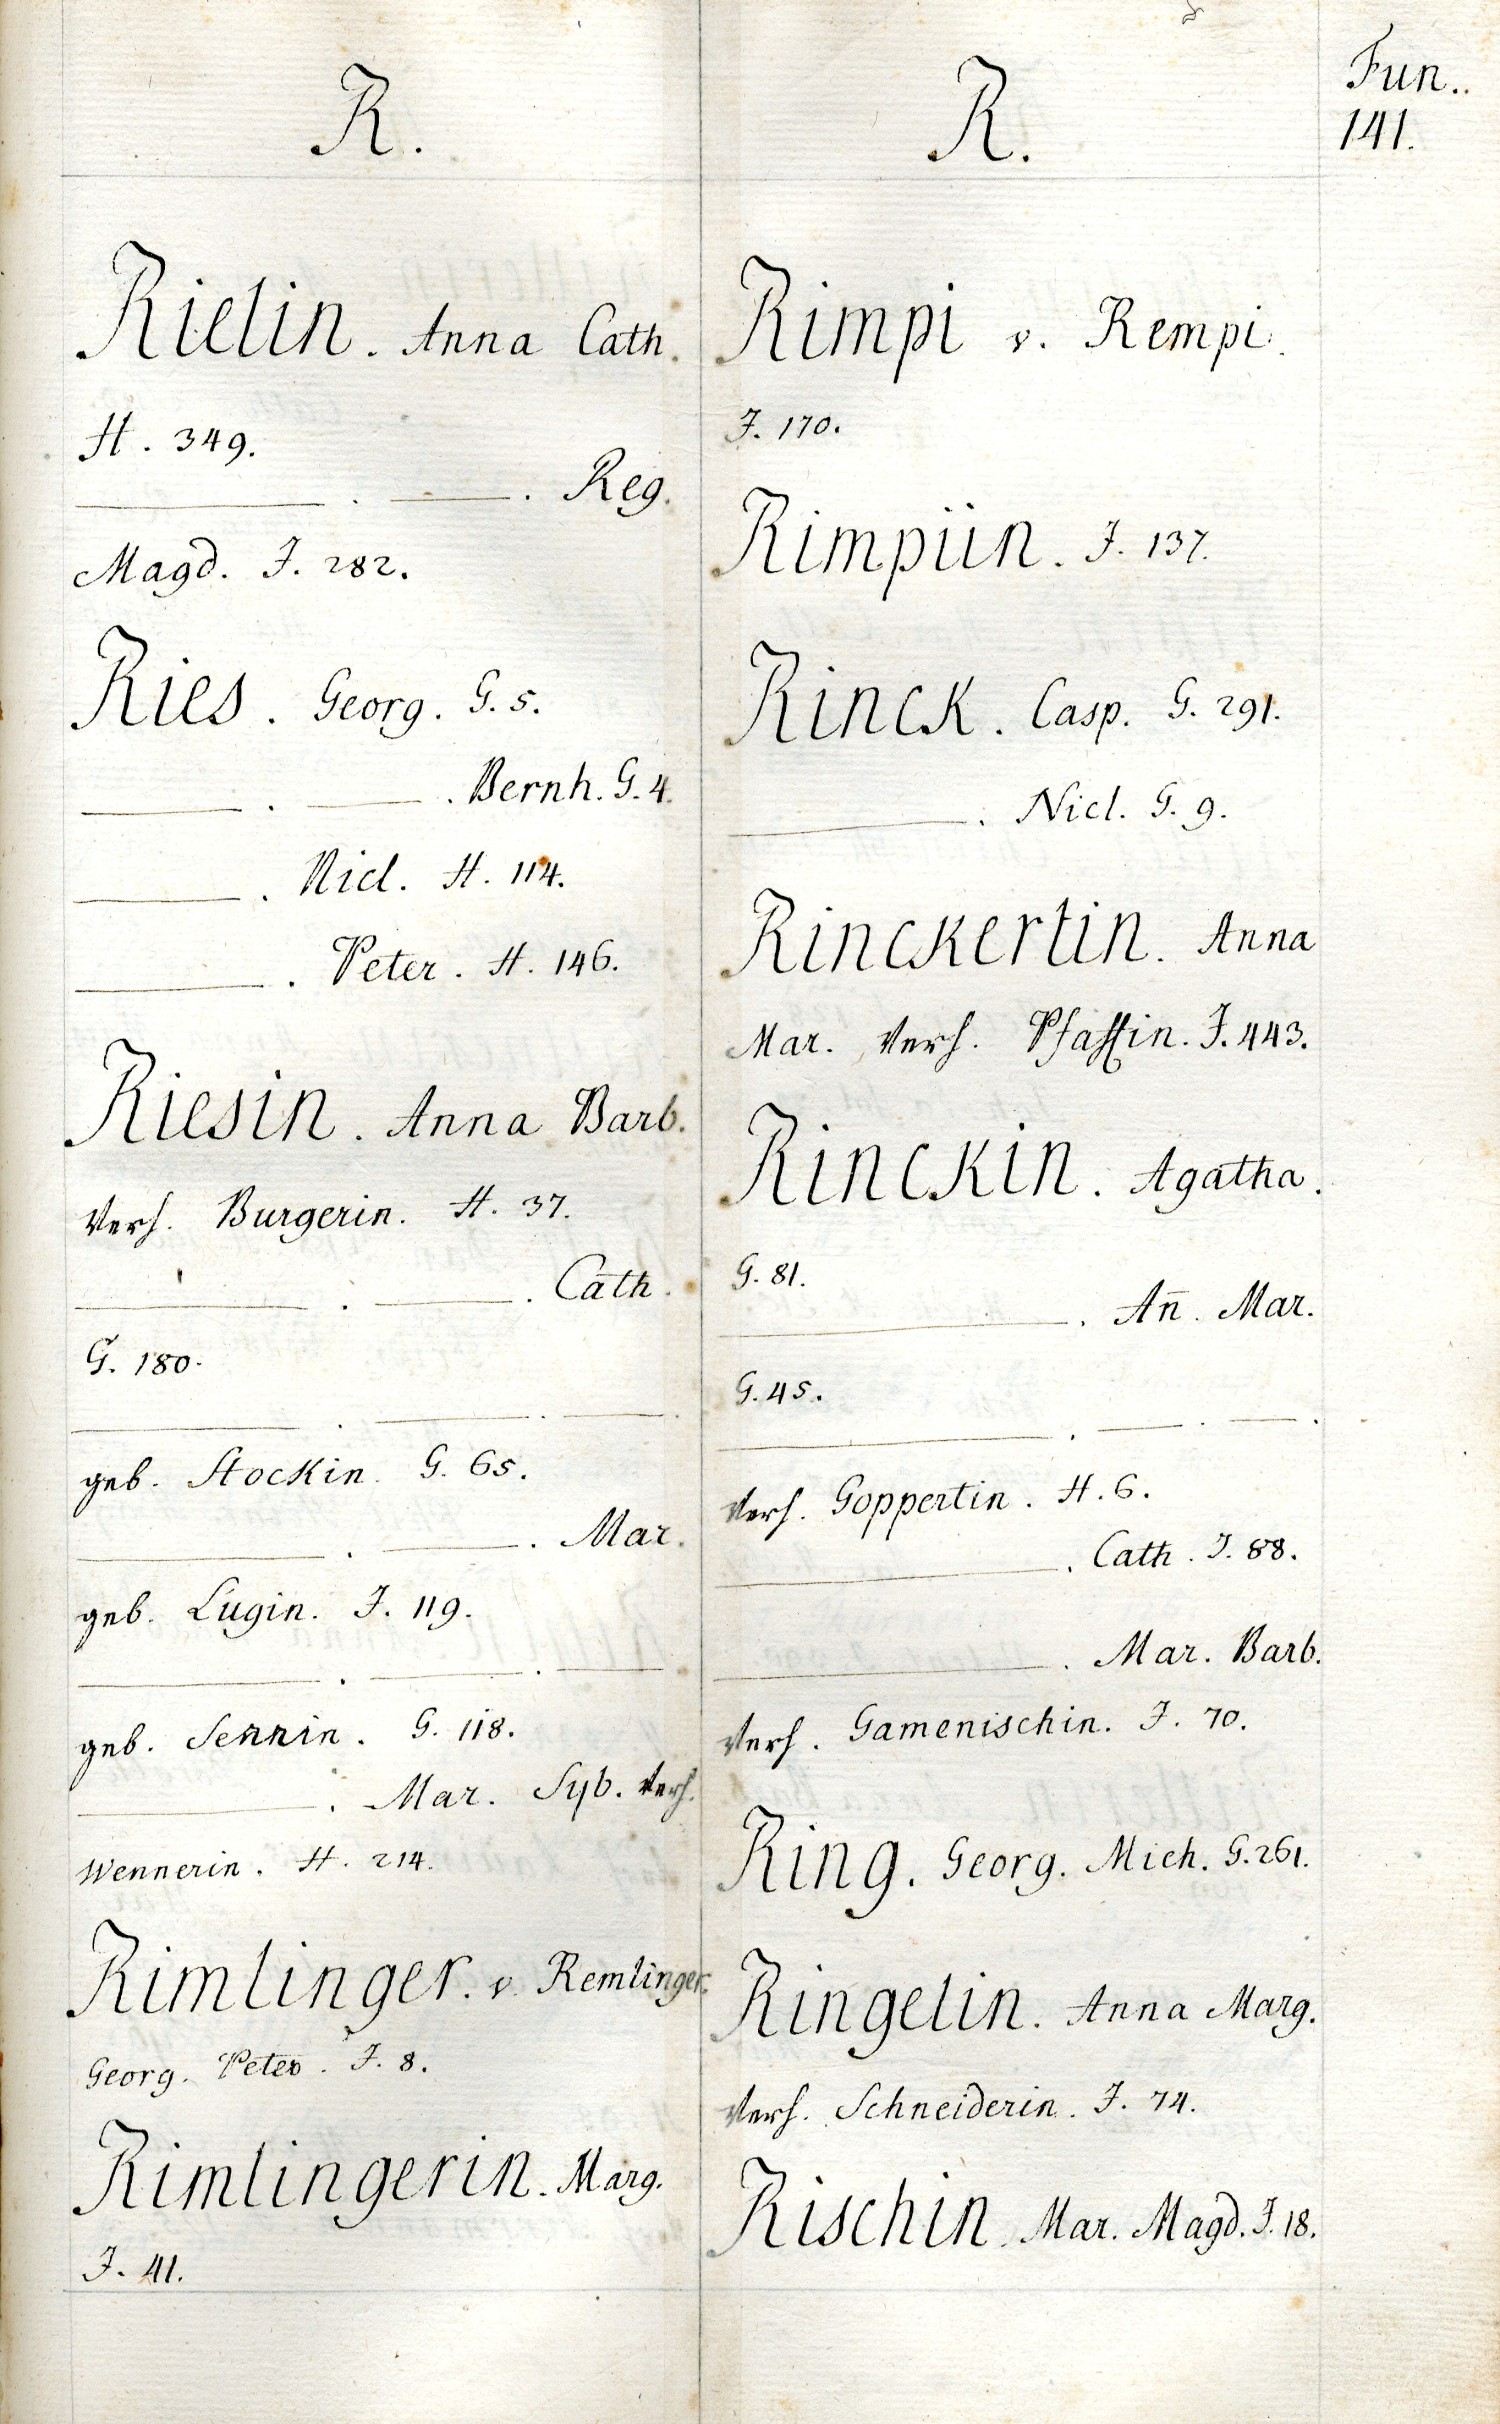 Fun..
141.
R.
Rielin. Anna Cath.
H. 349.
———. ———. Reg.
Magd. J. 282.
Ries. Georg. G. 5.
———. ———. Bernh. G. 4.
———. Nicl. H. 114.
———. Peter. H. 146.
Riesin. Anna Barb.
Verh. Burgerin. H. 37.
———. ———. Cath.
G. 180.
———. ———. ———.
geb. Stockin. G. 65.
———. ———. Mar.
geb. Lugin. J. 119.
———. ———. ———.
geb. Sennin. G. 118.
———. Mar. Syb. Verh.
Wennerin. H. 214.
Rimlinger. v. Remlinger.
Georg. Peter. J. 8.
Rimlingerin. Marg.
J. 41.
R.
Rimpi v. Rempi.
J. 170.
Rimpiin. J. 137.
Rinck. Casp. G. 291.
———. Nicl. G. 9.
Rinckertin. Anna
Mar. Verh. Pfaffin. J. 443.
Rinckin. Agatha.
G. 81.
———. An̄. Mar.
G. 45.
———. ———. ———.
Verh. Goppertin. H. 6.
———. Cath. J. 88.
———. Mar. Barb.
Verh. Gamenischin. J. 70.
Ring. Georg. Mich. G. 261.
Ringelin. Anna Marg.
Verh. Schneiderin. J. 74.
Rischin. Mar. Magd. J. 18.